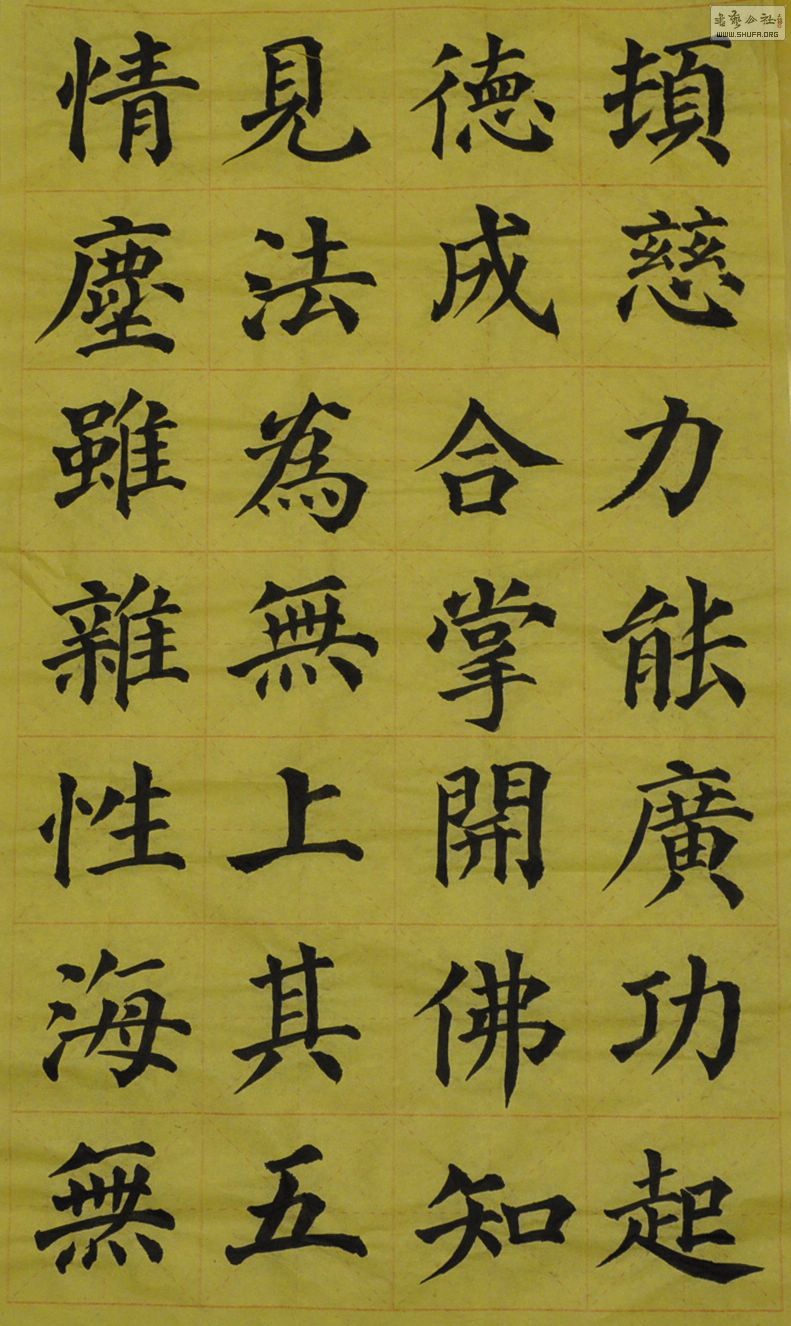 頓慈力能廣功起
德成合掌開佛知
見法為無上其五
情塵雖雜性海無
书艺公社
WWW.SHUFA.ORG